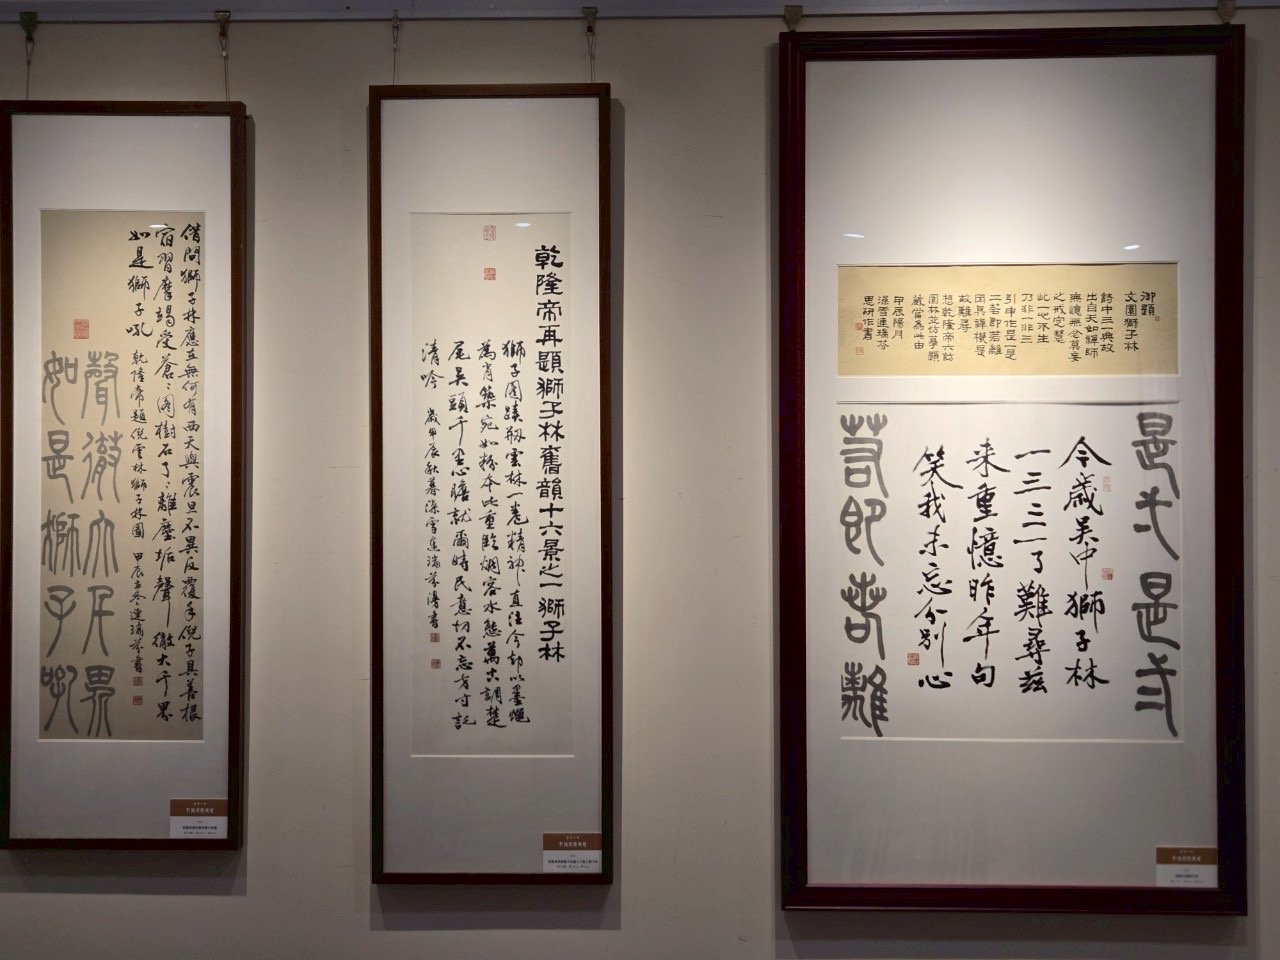 御題
文園獅子林
詩中三一典故
出自天如禪師
無憶無念莫妄
之戒定慧
此一心不生
乃非一非三
引申作是一是
二若即若離
因其禪模是
故難尋
想乾隆帝六訪
園林並仿摹題
歲當為此由
甲辰陽月
滌雪連瑞芬
思研作書
是一是二
今歲吴中獅子林
一三三一了難尋茲
来重憶昨年句
笑我未忘分別心
若即若離
乾隆帝再題獅子林舊韻十六景之一獅子林
獅子園蹟剏雲林一卷精神直注今却以墨繩
為肖築宛如粉本此重臨烟容水態萬古調楚
尾吴頭千里心瞻就爾時民意切不忘方寸託
清吟 歲甲辰秋暮滌雪連瑞芬漫書
借問獅子林應在無何有西天與震旦不異反覆手倪子具善根
宿習摩竭受蒼蒼圖樹石了了離塵垢聲徹大千界
如是獅子吼 乾隆帝題倪雲林獅子林圖 甲辰立冬連瑞芬書
聲徹大千界
如是獅子吼